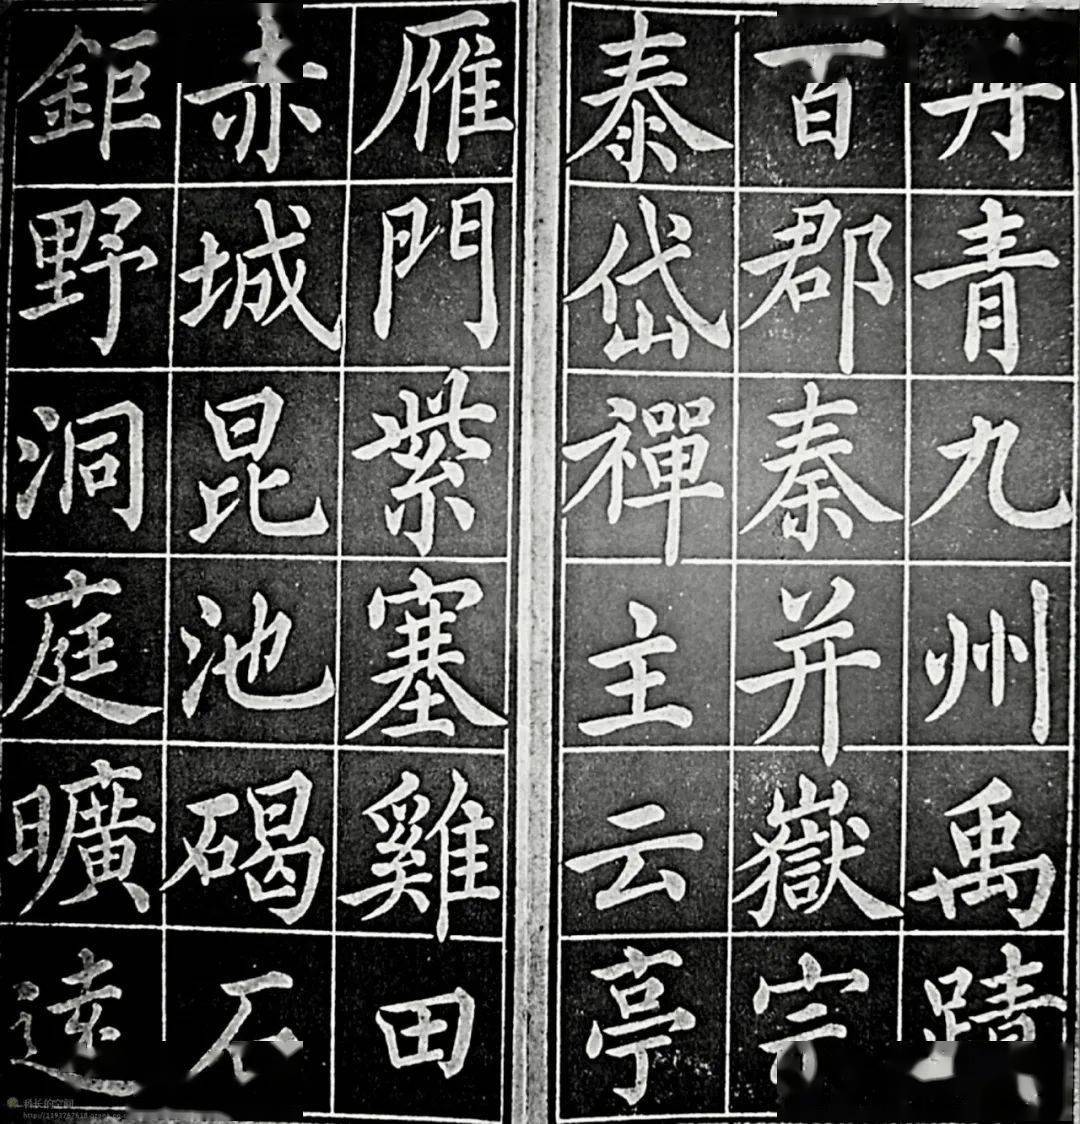 丹青九州禹蹟
百郡秦并嶽宗
泰岱禪主云亭
雁門紫塞雞田
赤城昆池碣石
鉅野洞庭曠遠
科长的空间